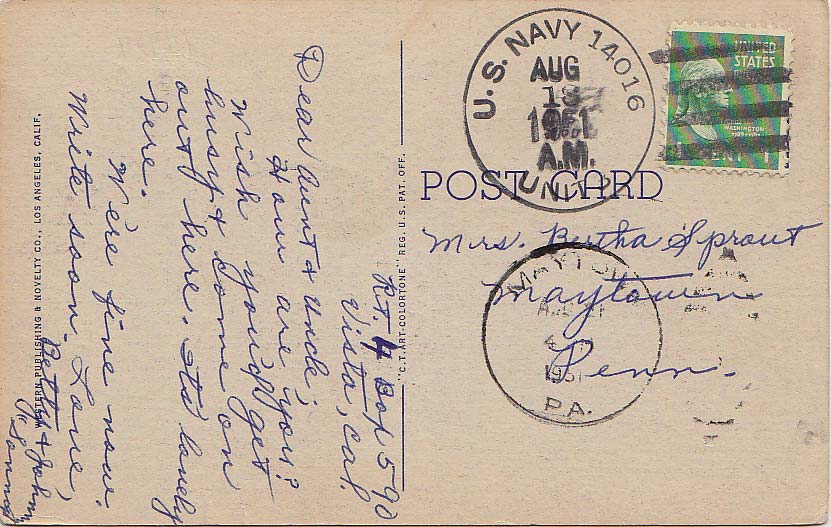 Rt. 4 Box 590
Vista, Cal.
Dear Aunt & Uncle,
How are you?
Wish you'd get
busy & come on
out here. Its lovely
here.
We're fine now.
Write soon. Love,
Betty & John
& Sonny
WESTERN PUBLISHING & NOVELTY CO., LOS ANGELES, CALIF.
"C.T. ART-COLORTONE" REG. U.S. PAT. OFF.
U.S. NAVY 14016
AUG
1951
A.M.
UNIT
UNITED
STATES
WASHINGTON
1
POST CARD
Mrs. Bertha Sprout
Maytown
Penn.
MAYTOWN
1951
PA.